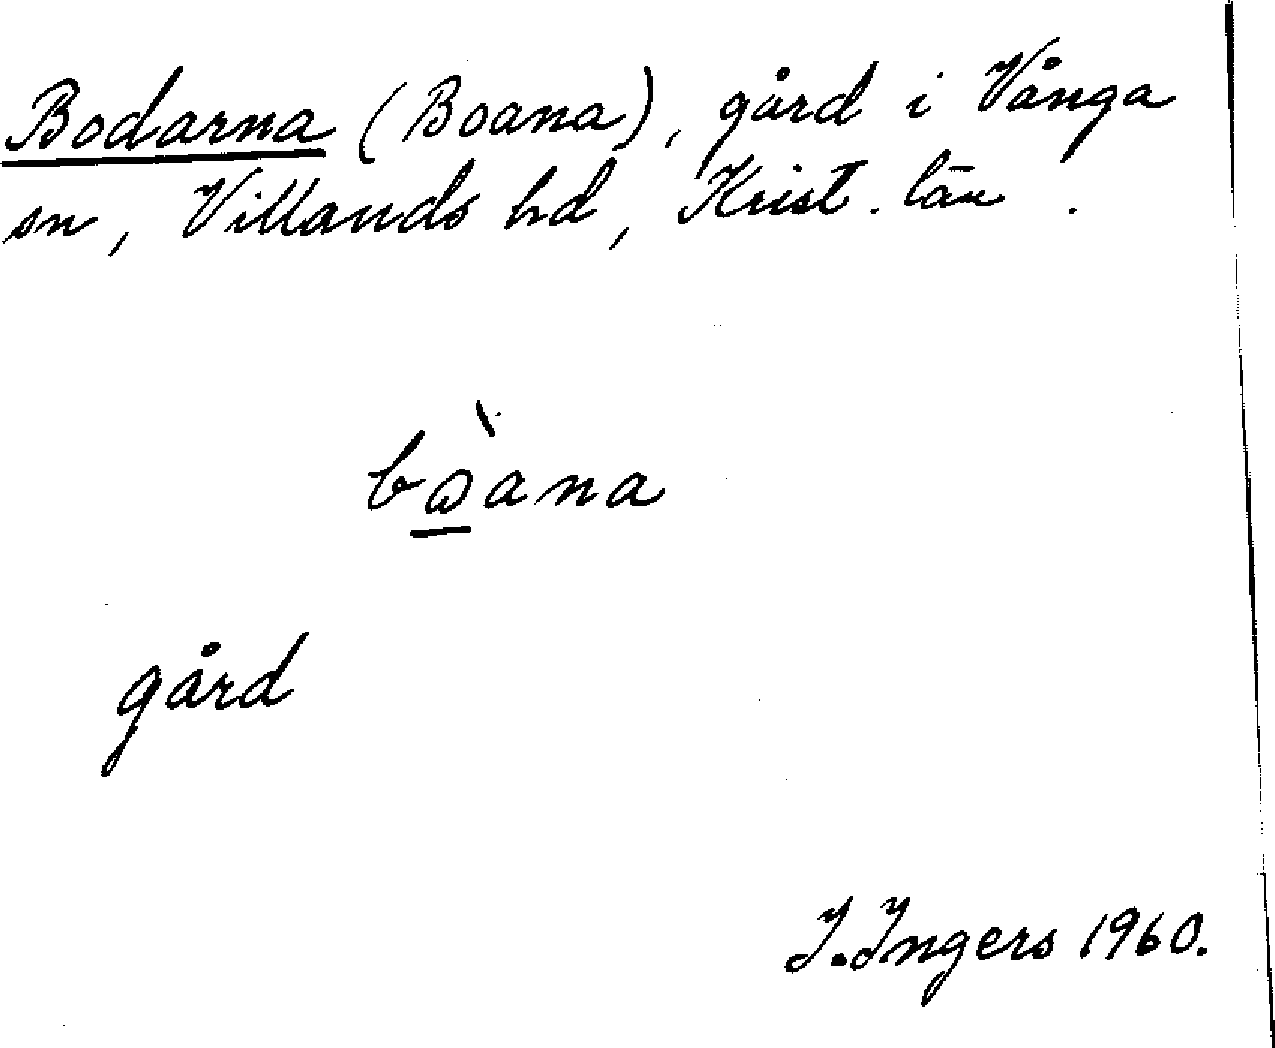 Bodarna (Boana), gård i Vånga
sn, Villands hd, Krist. län.
bɷ̀ana
gård
I. Ingers 1960.